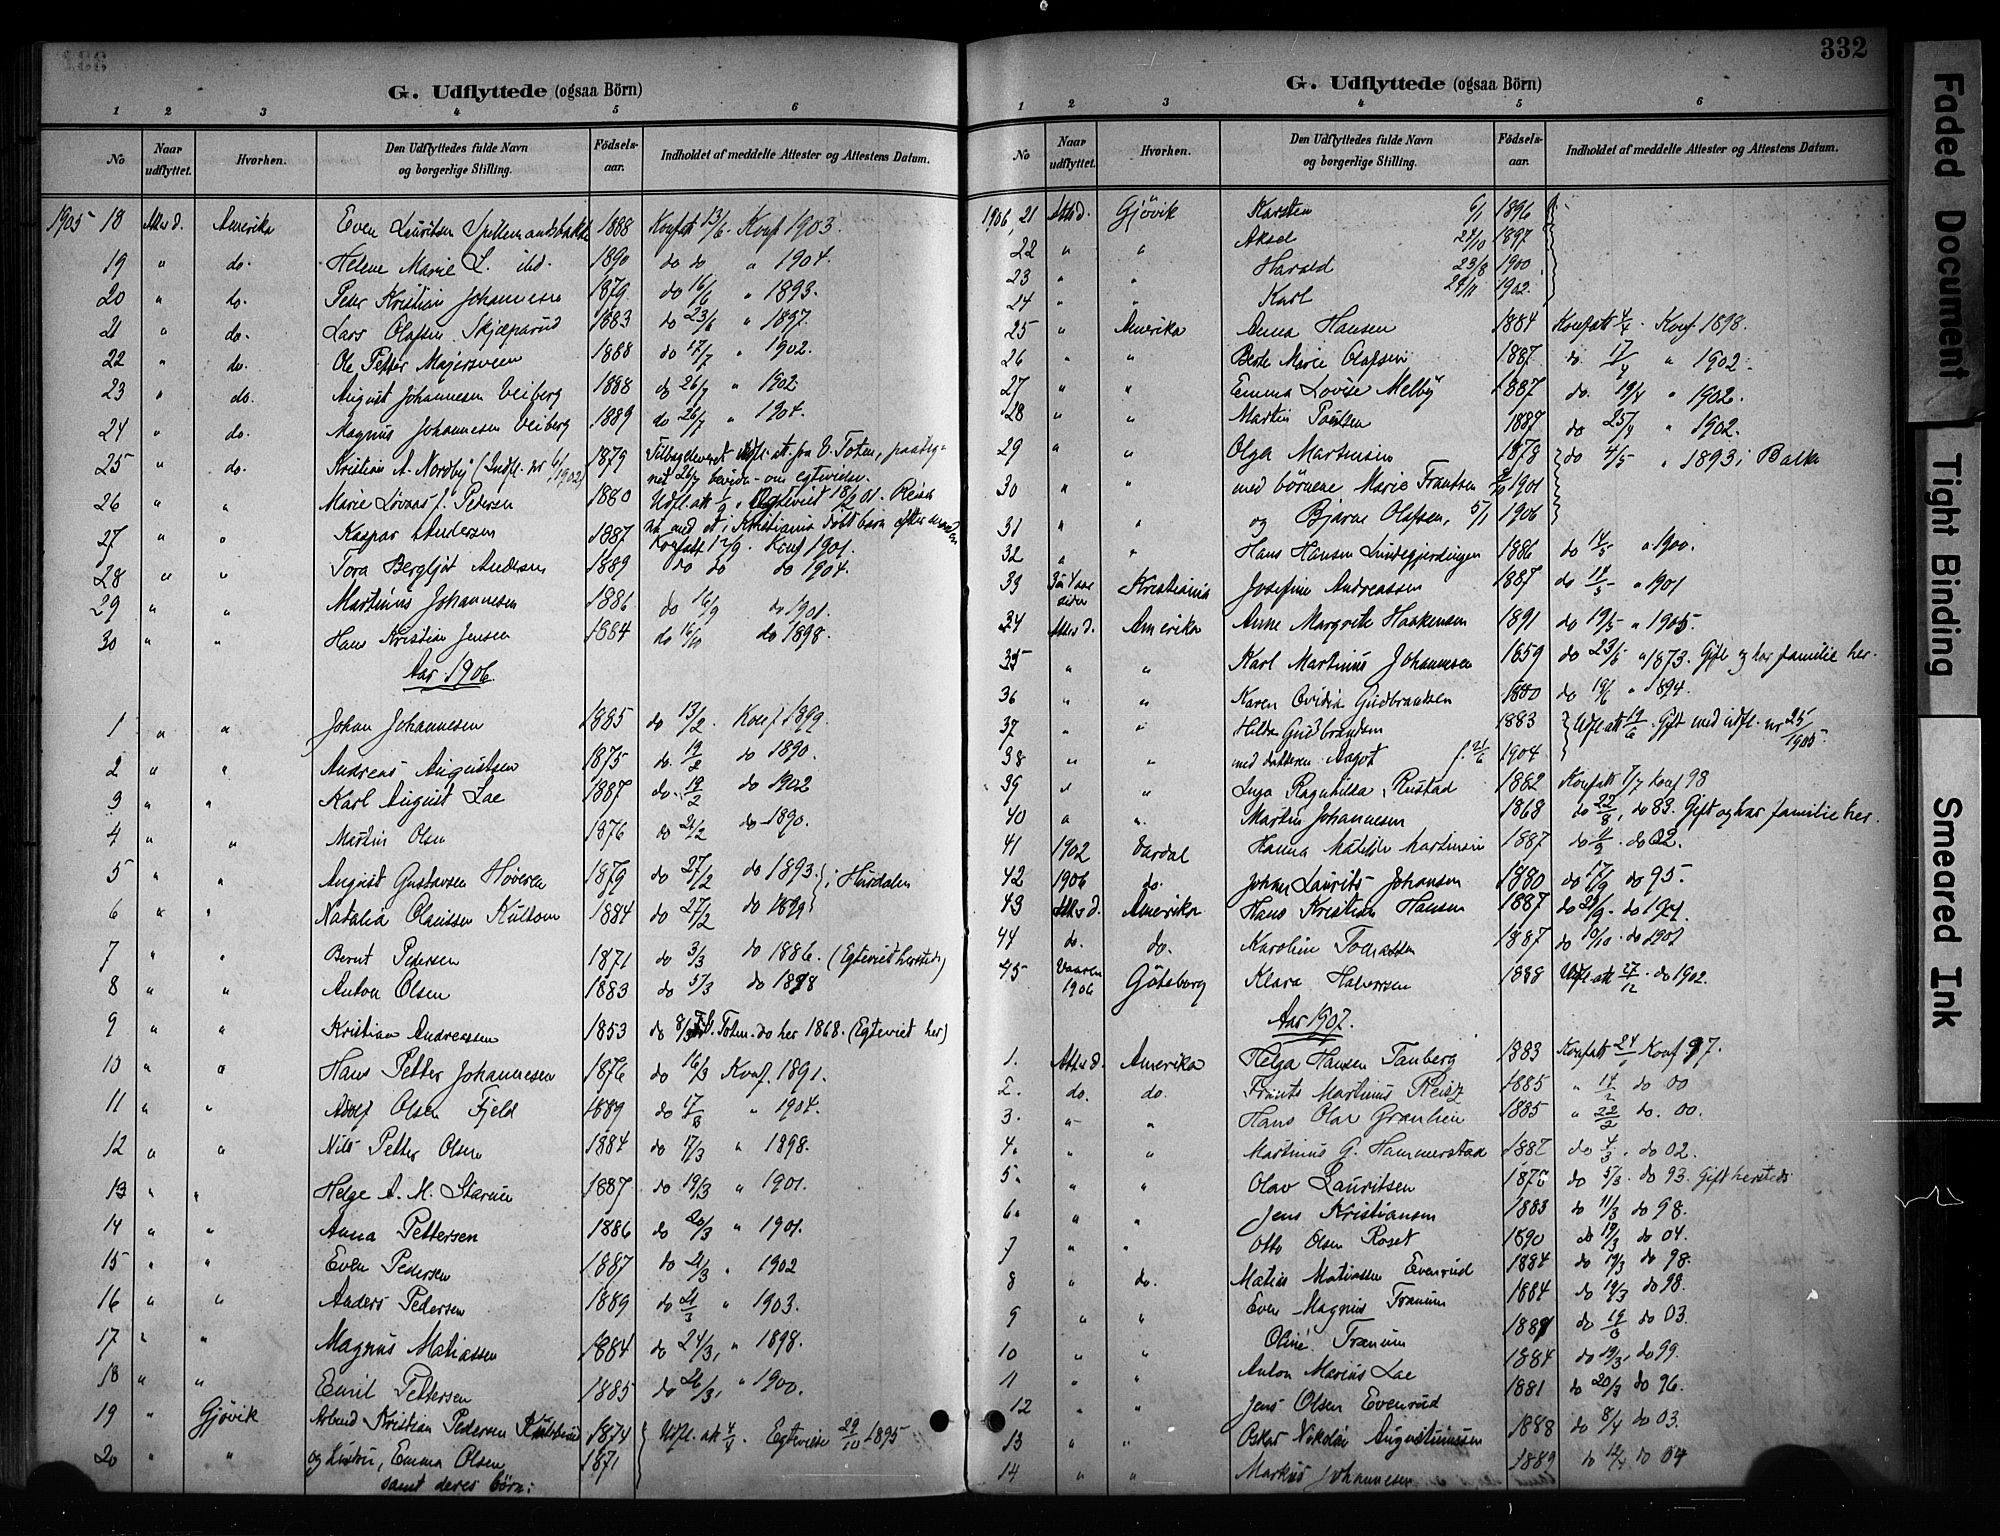 G. Udflyttede (ogsaa Börn)
1 2 3 4 5 6
No Naar udflyttet. Hvorhen. Den Udflyttedes fulde Navn og borgerlige Stilling. Födsels-aar. Indholdet af meddelte Attester og Attestens Datum.
1905 18 Amerika Even Lauritsen 1888 Konfatt 13/6. Konf 1903.
19 " do. Helene Marie L. ibd. 1890 do do " 1904.
20 " do. Peter Kristian Johannesen 1879 do 16/6 " 1893.
21 " do. Lars Olafsen Skjæparud 1883 do 23/6 " 1897.
22 " do. Ole Petter Majersveen 1888 do 17/7 " 1902.
23 " do. August Johannesen Veiberg 1888 do 26/7 " 1902.
24 " do. Magnus Johannesen Veiberg 1889 do 26/7 " 1904.
25 " do. Kristian A. Nordby (Indfl. nr 1902) 1879 Tilbageleveret udfl. att. fra V. Toten,
26 " " Marie 1880
27 " " Kaspar Andersen 1887 Konfatt 12/9. Konf 1901.
28 " " Tora Bergljot Andersen 1889 do do do 1904.
29 " " Martinus Johannesen 1886 do 16/9 do 1901.
30 " " Hans Kristian Jensen 1884 do 16/10 do 1898.
Aar 1906.
1 " " Johan Johannesen 1885 do 13/2 Konf 1899.
2 " " Andreas Augustsen 1875 do. 19/2 do 1890.
3 " " Karl August Lae 1887 do. 19/2 do 1902
4 " " Martin Olsen 1876 do 21/2 do 1890.
5 " " August Gustavsen Höveren 1879 do 27/2 do 1893. } i Hurdalen
6 " " Natalia Olaussen 1884 do 27/2 do 1899
7 " " Bernt Pedersen 1871 do 3/3 do 1886. (Egteviet hersteds)
8 " " Anton Olsen 1883 do 5/3 do 1898
9 " " Kristian Andreassen 1853 do 8/3 Toten do her 1868. (Egteviet her)
10 " " Hans Petter Johannesen 1876 do 16/3 Konf. 1891.
11 " " Adolf Olsen Fjeld 1889 do 17/3 " 1904.
12 " " Nils Petter Olsen 1884 do 17/3 " 1898.
13 " " Helge A. M. Starum 1887 do 19/3 " 1901.
14 " " Anna Pettersen 1886 do 20/3 " 1901.
15 " " Even Pedersen 1887 do 21/3 " 1902
16 " " Anders Pedersen 1889 do 21/3 " 1903.
17 " " Magnus Matiassen 1884 do 24/3, " 1898.
18 " " Emil Pettersen 1885 do 26/3, " 1900.
19 " Gjövik Kristian Pedersen 1874 Udfl. att 4/4. Egteviede 29/10 1895
20 " " og hustru, Emma Olsen 1871
samt deres börn:
332
G. Udflyttede (ogsaa Börn)
1 2 3 4 5 6
No Naar udflyttet. Hvorhen. Den Udflyttedes fulde Navn og borgerlige Stilling. Födsels-aar. Indholdet af meddelte Attester og Attestens Datum.
1906, 21 Gjövik Karsten 6/1 1896
22 " " Aksel 24/10 1897
23 " " Harald 23/8 1900
24 " " Karl 1902
25 " Amerika Anna Hansen 1884 Konfatt 4/4. Konf 1898.
26 " " Berte Marie Olafsen 1887 do 17/4 " 1902.
27 " " Emma Lovise Melby 1887 do. 19/4 " 1902.
28 " " Martin Paulsen 1887 do 25/4 " 1902.
29 " " Olga Martinsen 1878 do 4/5 " 1893 i Balke
30 " " med börnene Marie Frantsen 1901
31 " " og Bjarne Olafsen, 5/1 1906
32 " " Hans Hansen Lundegjerdingen 1886 do 14/5 " 1900.
33 3 à 4 aar siden Kristiania Josefine Andreassen 1887 do 14/5 " 1901
34 Amerika Anne Margrete Haakensen 1891 do 19/5 " 1905.
35 " " Karl Martinus Johannesen 1859 do 23/5 " 1873. Gift og har familie her.
36 " " Karen Ovidia Gudbrandsen 1880 do 19/6 " 1894.
37 " " Hilda Gudbrandsen 1883 Udfl att 19/6. Gift med udfl. nr 25/1905.
38 " " med datteren Aagot 1904
39 " " Inga Ragnhilda Rustad 1882 Konfatt 7/7 Konf 98
40 " " Martin Johannesen 1868 do 22/8, do 83. Gift og har familie her.
41 1902 Vardal Hanna Matilde Martinsen 1887 do 11/9. do 02.
42 1906 do. Johan Laurits Johansen 1880 do 17/9 do 95.
43 Amerika Hans Kristian Hansen 1887 do 29/9. do 1901.
44 do. do. Karoline Tomassen 1887 do 10/10. do 1901
45 Vaaren 1906 Göteborg Klara Halversen 1888 Udfl. att 27/12. do 1902.
Aar 1907.
1. Amerika Helga Hansen Tanberg 1883 Konfatt Konf 97.
2. do. do. Frants Martinus Reisz 1885 " 14/2 do 00
3. " " Hans Olav Granlien 1885 " 22/2 do. 00.
4. " " Martinus G. Hammerstad 1887 do 4/3. do 02.
5. " " Olav Lauritsen 1878 do 5/3. do 93. Gift hersteds
6. " " Jens Kristiansen 1883 do 11/3 do 98.
7 " " Otto Olsen Roset 1890 do 19/3 do 04.
8 " do. Matias Matiassen Evenrud 1884 do 19/3 do 98.
9 " " Even Magnus Tranum 1884 do 19/3 do 98.
10 " " Oline Tranum do 03.
11 " " Anton Marius Lae 1884 do 19/3, do 99.
12 " " Jens Olsen Evenrud 1881 do 20/3 do 96.
13 " " Oskar Nikolai Augustinussen 1888 do 8/4 do 03.
14 " " Markus Johannesen 1889 do 12/4 do 04
Faded Document
Tight Binding
Smeared Ink